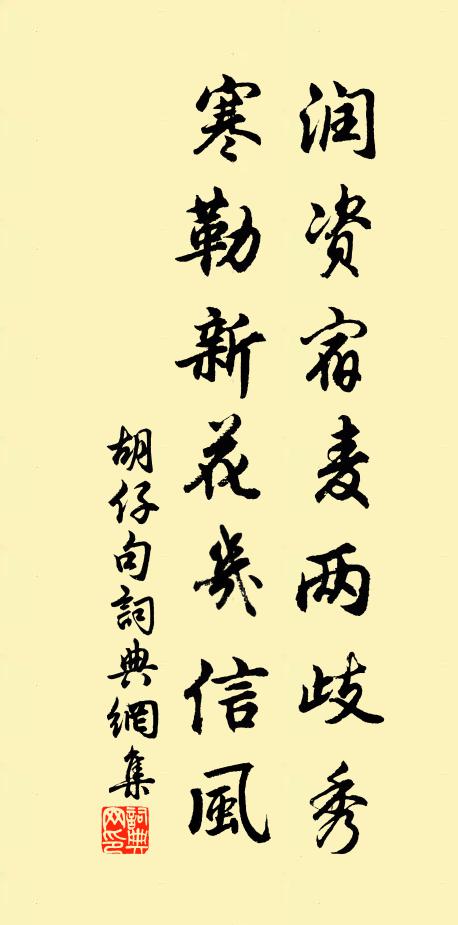 润资宿麦两歧秀
寒勒新花几信風
胡仔句詞典網集
詞典網印